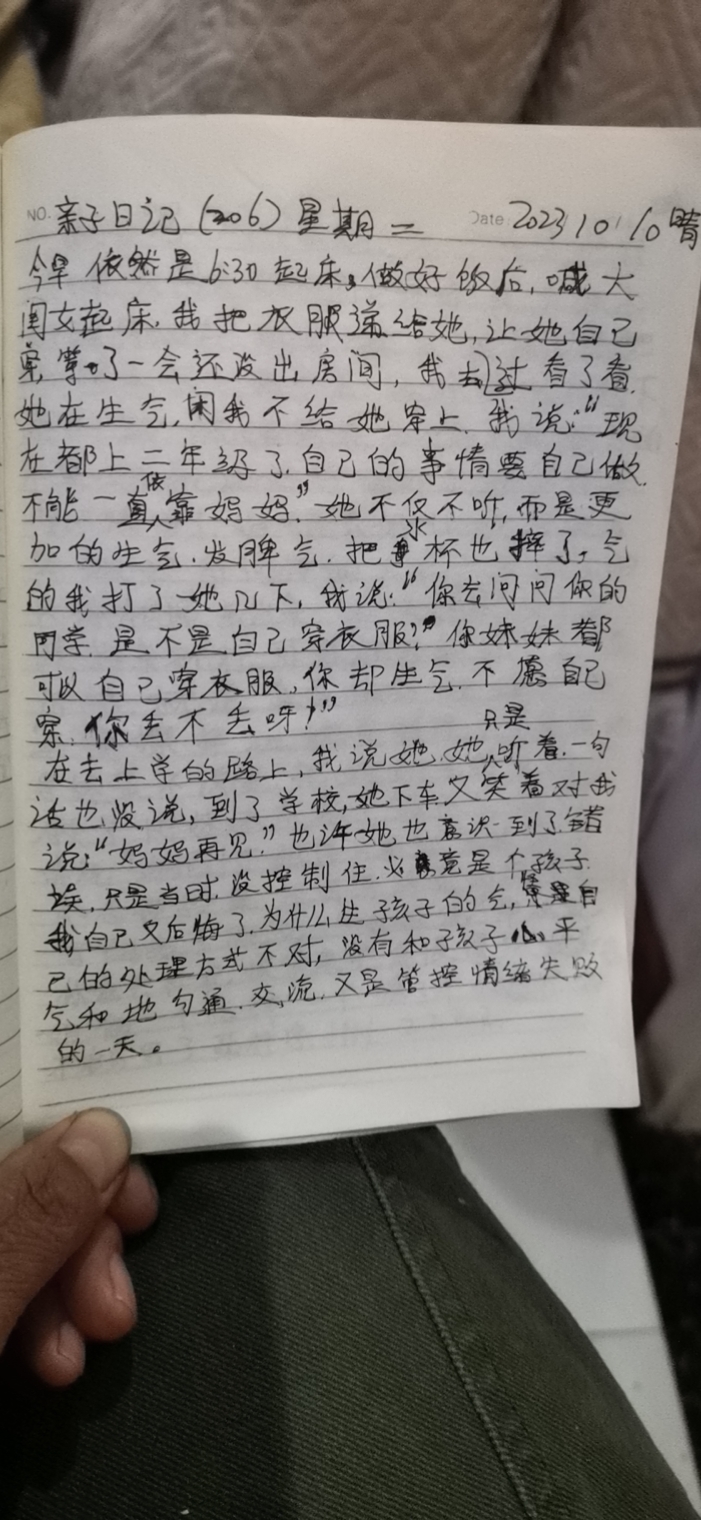 NO. 亲子日记(206)星期二 Date 2023 10 10 晴
今早依然是6:30起床,做好饭后,喊大
闺女起床,我把衣服递给她,让她自己
穿,等了一会还没出房间,我去过看了看,
她在生气,闲我不给她穿上,我说:“现
在都上二年级了,自己的事情要自己做,
不能一直依靠妈妈。”她不仅不听,而是更
加的生气.发脾气.把水杯也摔了,气
的我打了她几下,我说:“你去问问你的
同学.是不是自己穿衣服?”你妹妹都
可以自己穿衣服,你却生气.不愿自己
穿,你丢不丢呀!”
在去上学的路上,我说她,她只是听着.一句
话也没说,到了学校,她下车又笑着对我
说:“妈妈再见。”也许她也意识到了错
误.只是当时.没控制住.必竟是个孩子.
我自己又后悔了.为什么生孩子的气,是自
己的处理方式不对,没有和孩子心平
气和地勾通.交流.又是管控情绪失败
的一天。